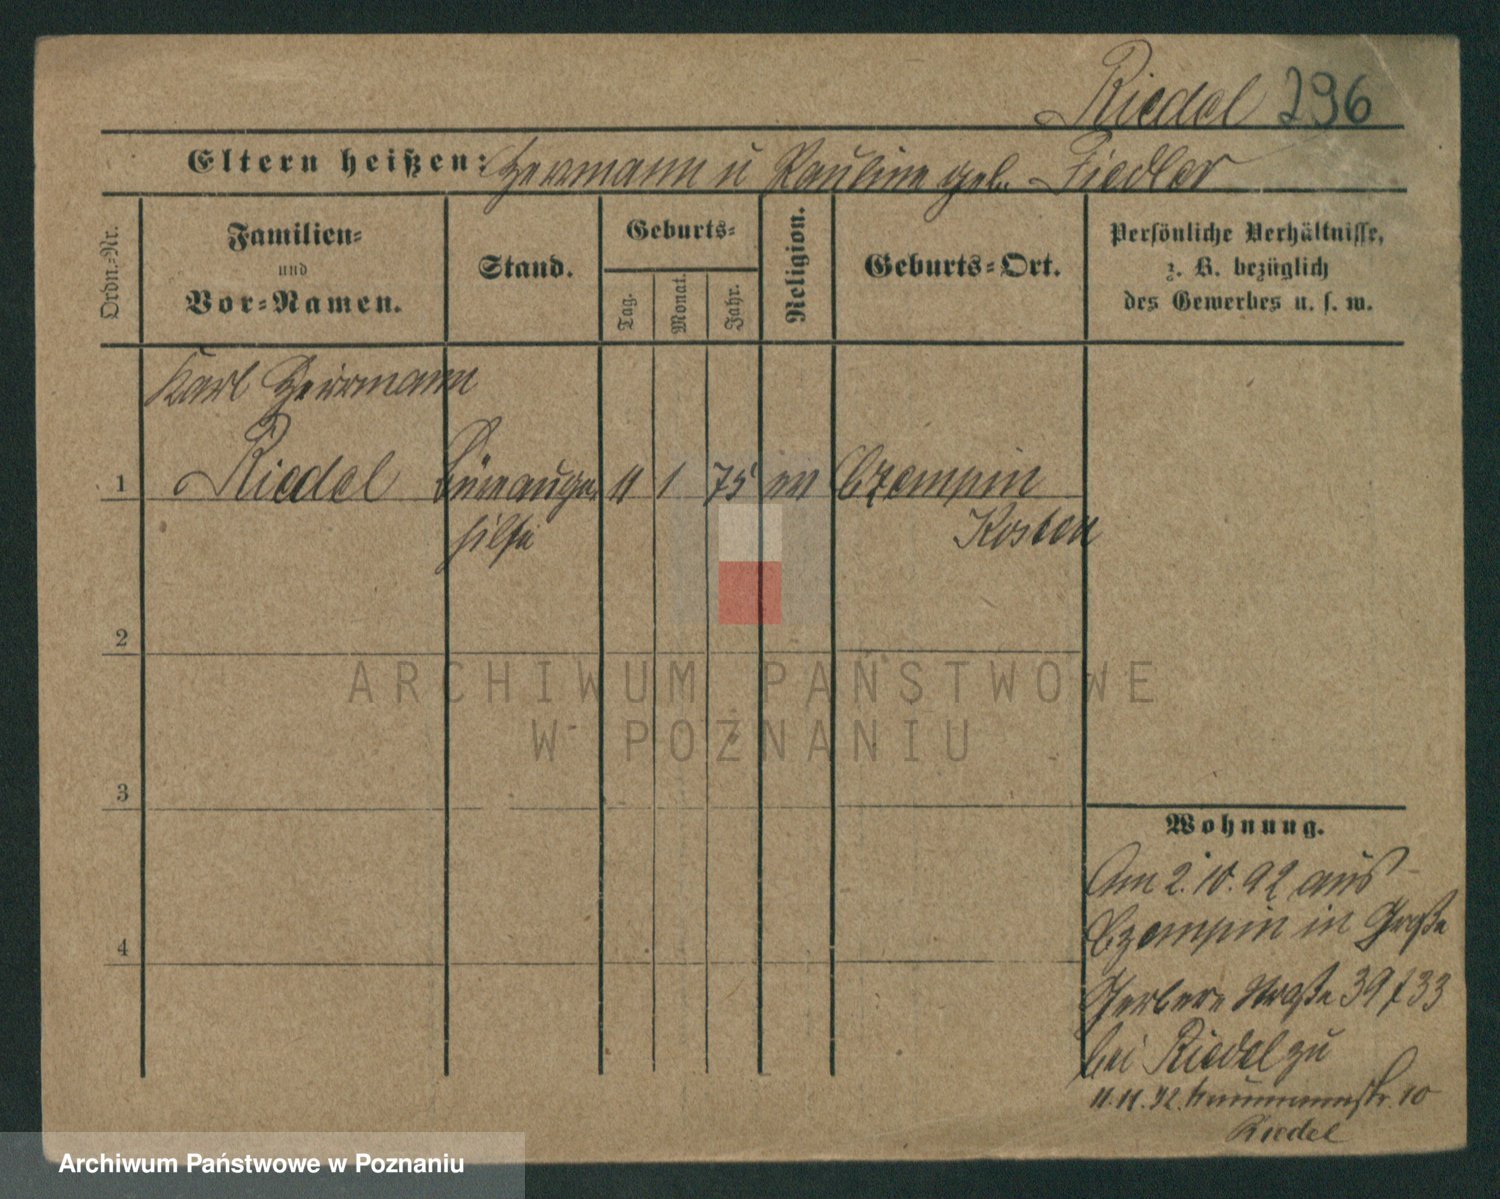 Riedel 296
Eltern heißen: Herrmann u Pauline geb. Fiedler
Ordn.-Nr.
Familien-
und
Vor-Namen.
Stand.
Geburts-
Tag.
Monat.
Jahr.
Religion.
Geburts-Ort.
Persönliche Verhältnisse,
z. B. bezüglich
des Gewerbes u. s. w.
Karl Herrmann
1 Riedel Büreauge- 11 1 75 Czempin
hilfe Kosten
2
3
4
Wohnung.
Am 2.10.92 aus
Czempin in Große
Gerberstraße 39/33
bei Riedel zu
11.11.92. Naumannstr. 10
Riedel
ARCHIWUM PAŃSTWOWE
W POZNANIU
Archiwum Państwowe w Poznaniu